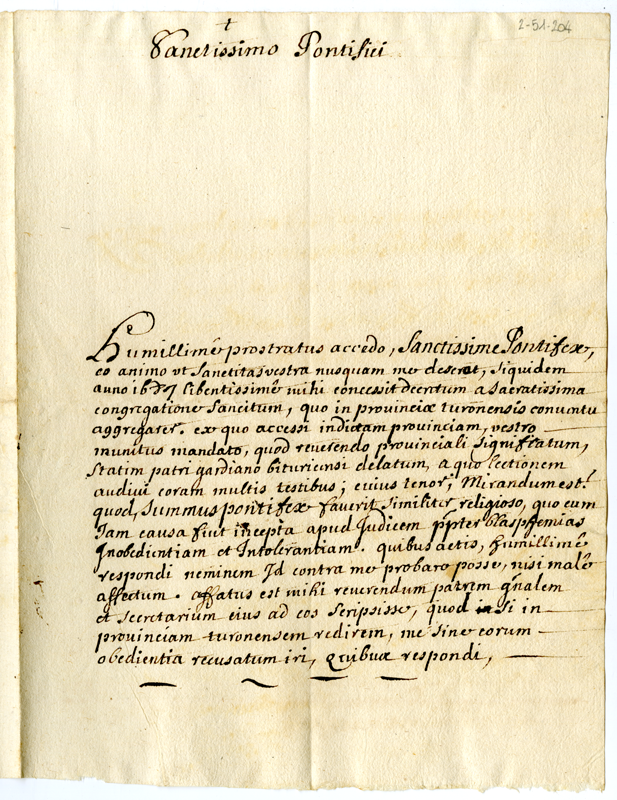 2-51-204
†
Sanctissimo Pontifici
Humillimê prostratus accedo, Sanctissime Pontifex,
eo animo vt Sanctitas vestra nusquam me deserat, siquidem
anno libentissimê mihi concessit decretum a Sacratissima
congregatione Sancitum, quo in provinciæ turonensis conventu
aggregarer. ex quo accessi indictam provinciam, vestro
munitus mandato, quod reverendo provinciali significatum,
statim patri gardiano bituricensi delatum, a quo lectionem
audivi coram multis testibus; eiuius tenor, Mirandum est.
quod, Summus pontifex faverit similiter religioso, quo cum
Iam causa fuit incepta apud Judicem ppter blasphemias
Inobedientiam et Intolerantiam. quibus actis, humillimê
respondi neminem Id contra me probare posse, nisi malê
affectum. affatus est mihi reverendum patrem gñalem
et secretarium eius ad eos scripsisse, quod si in
provinciam turonensem redirem, me sine eorum
obedientia recusatum iri, quibux respondi,